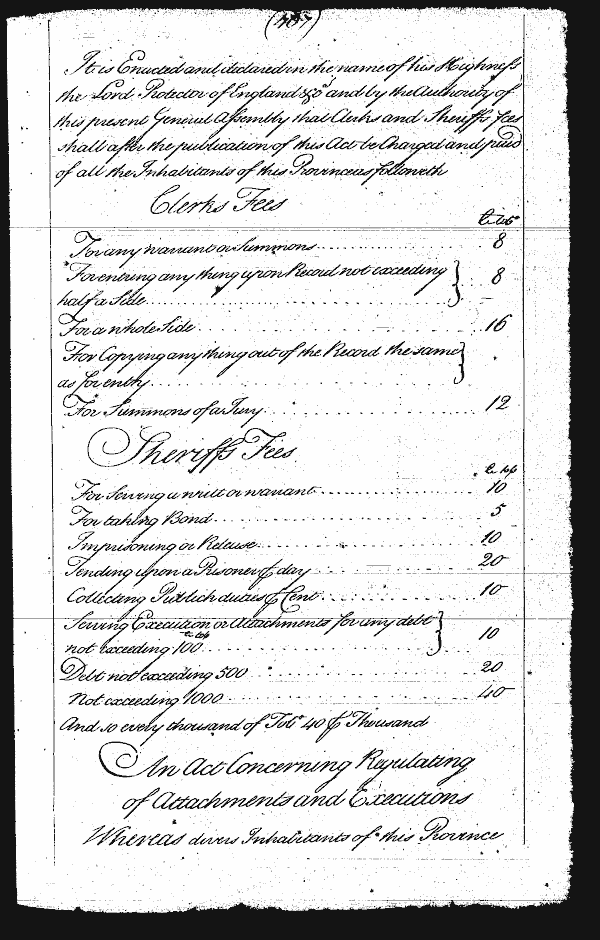 It is Enacted and declared in the name of his Highness
the Lord Protector of England &c and by the Authority of
this present General Assembly that Clerks and Sheriffs fees
shall after the publication of this Act be Charged and paid
of all the Inhabitants of this Province as followeth
Clerks Fees
lb tob
For any warrant or Summons 8
For entring any thing upon Record not exceeding
half a Side 8
For a whole Side 16
For Copying any thing out of the Record the same
as for entry
For Summons of a Jury 12
Sheriffs Fees
lb tob
For Serving a writt or warrant 10
For taking Bond 5
Imprisoning or Release 10
Tending upon a Prisoner ⅌ day 20
Collecting Publick duties ⅌ Cent 10
Serving Execution or Attachments for any debt
lb tob
not exceeding 100 10
Debt not exceeding 500 20
Not exceeding 1000 40
And so every thousand of Tobo 40 ⅌ Thousand
An Act Concerning Regulating
of Attachments and Executions
Whereas divers Inhabitants of this Province